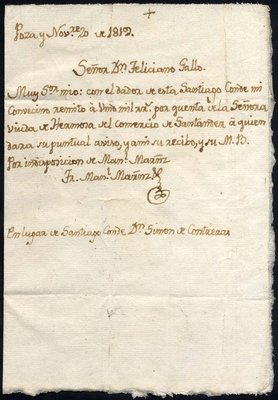 +
Poza y Nov.re 20 de 1812.
Señor Dn. Feliciano Gallo.
Muy Sor. mio: con el dador de esta Santiago Conde mi
Convecino remito à Vmd mil rs. por quenta de la Señora
viuda de Hermosa del Comercio de Santander à quien
dara su puntual aviso, y ami su recibo, y su M. B.
Por indisposicion de Manl. Martinz
Fr. Manl. Martinz
En lugar de Santiago Conde Dn. Simon de Contreras